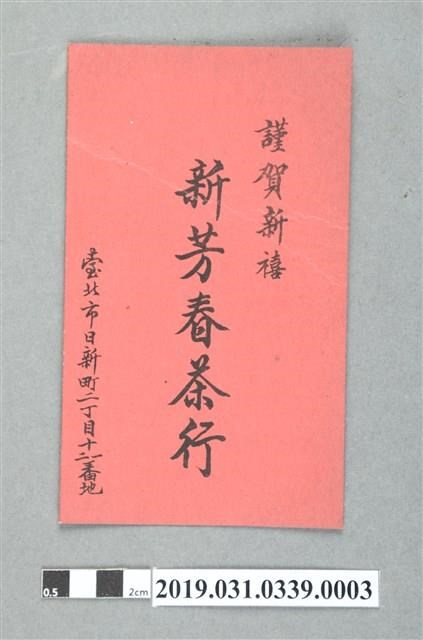 謹賀新禧
新芳春茶行
臺北市日新町二丁目十二番地
0.5
2cm
2019.031.0339.0003